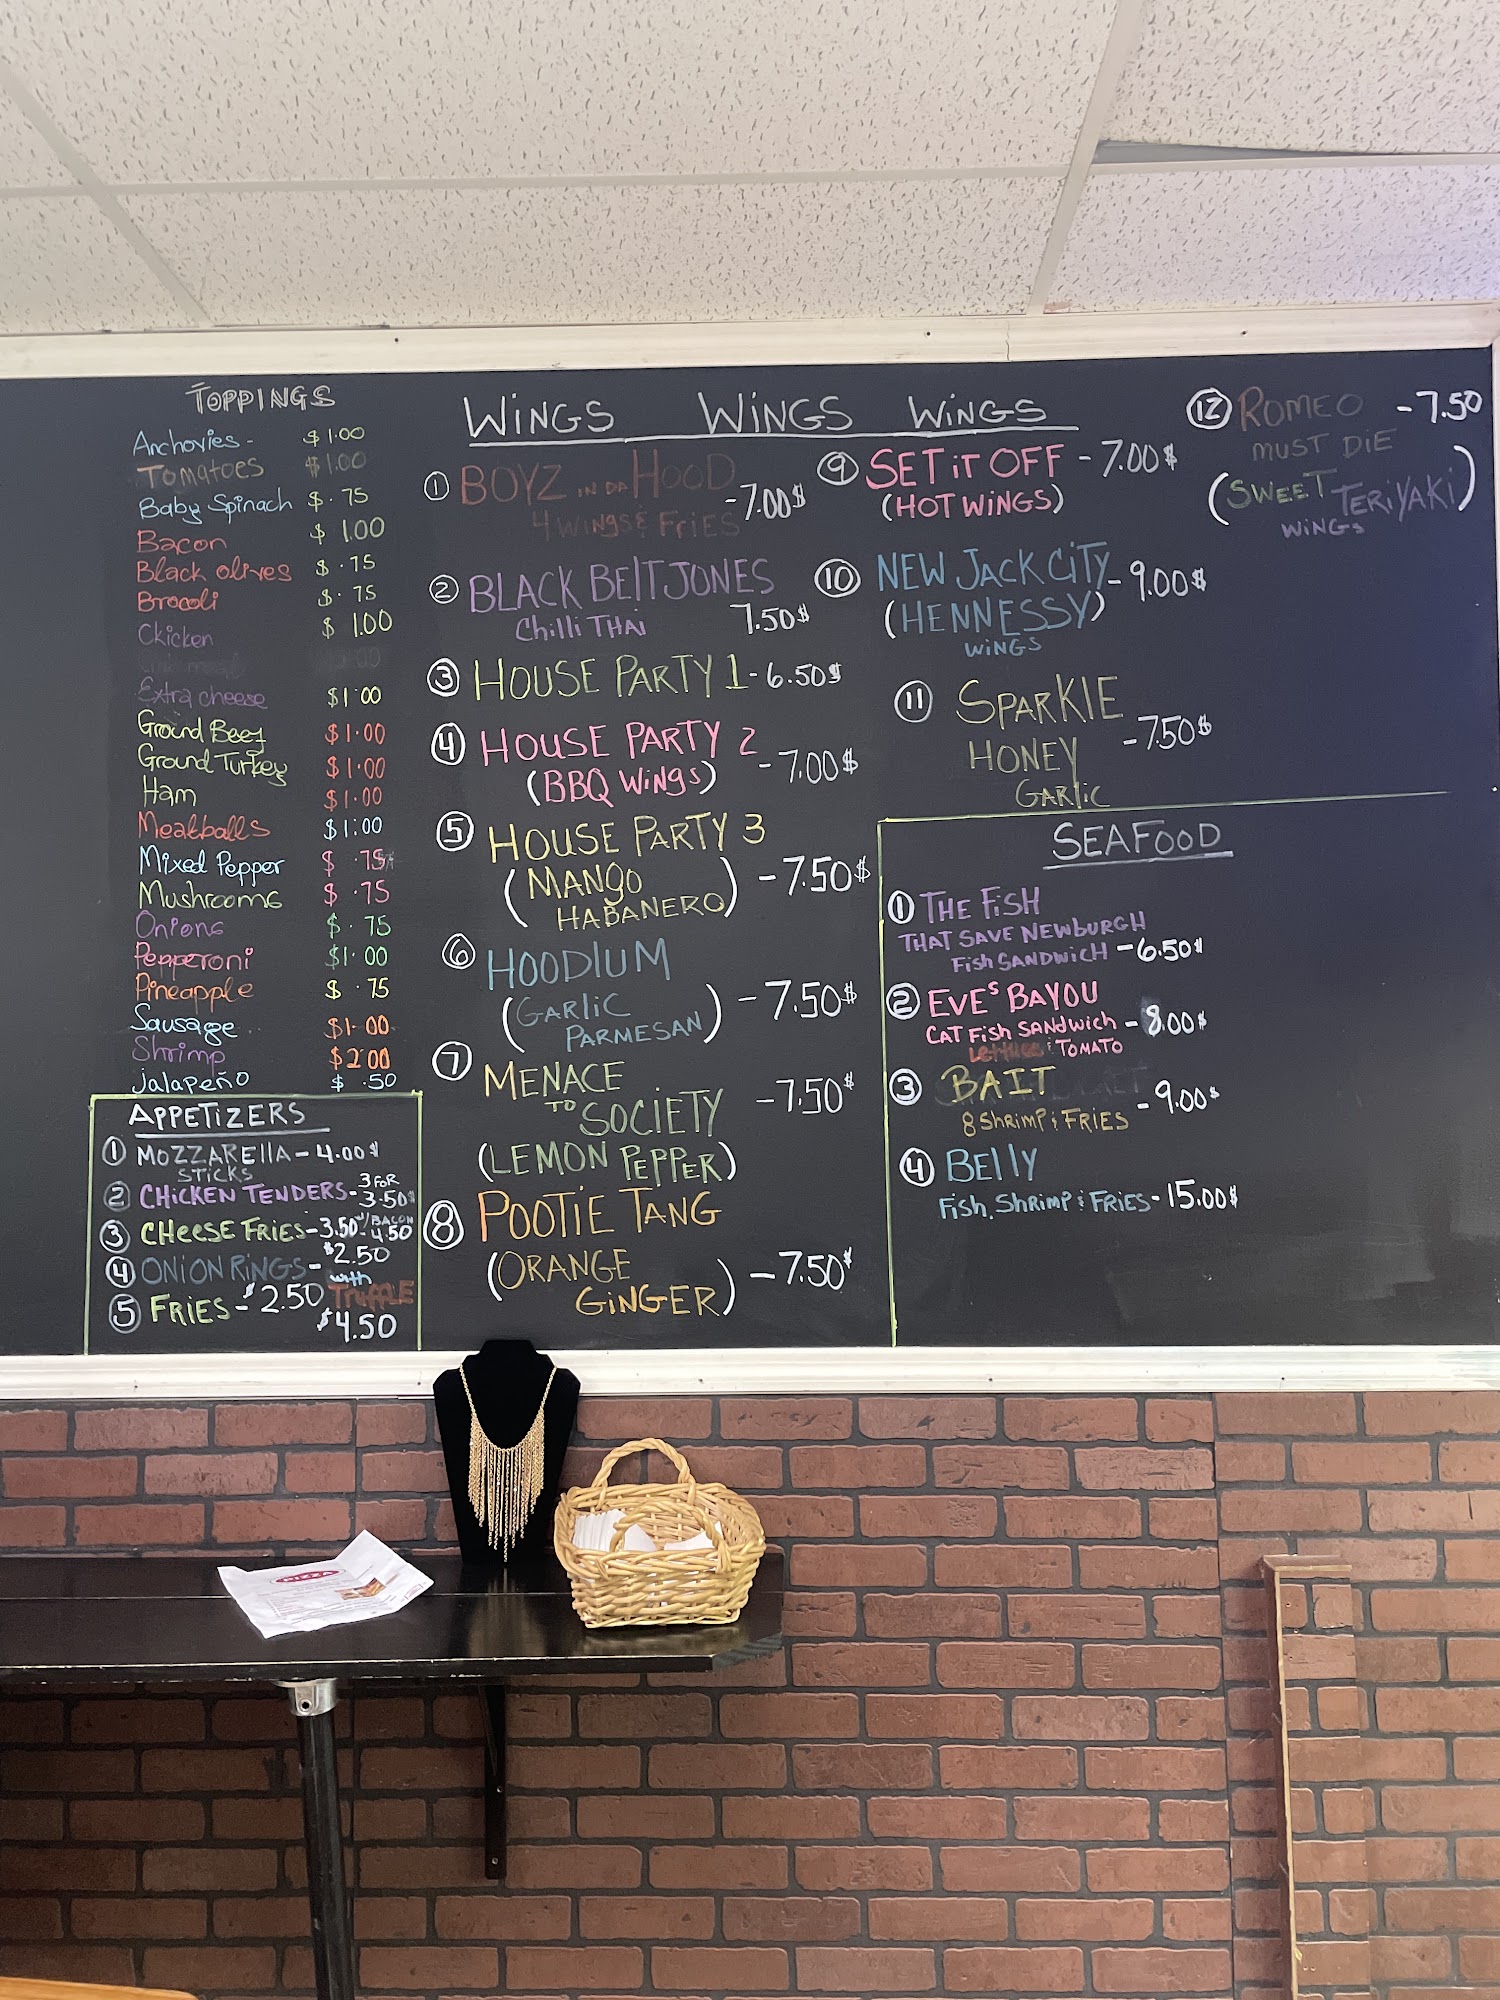 TOPPINGS
Anchovies - $1.00
Tomatoes $1.00
Baby Spinach $.75
Bacon $1.00
Black olives $.75
Brocoli $.75
Chicken $1.00
Extra cheese $1.00
Ground Beef $1.00
Ground Turkey $1.00
Ham $1.00
Meatballs $1.00
Mixed Pepper $.75
Mushrooms $.75
Onions $.75
Pepperoni $1.00
Pineapple $.75
Sausage $1.00
Shrimp $2.00
jalapeño $.50
APPETIZERS
① MOZZARElla - 4.00$
STICKS
② CHICKEN TENDERS - 3 FOR 3.50$
③ CHEESE FRIES - 3.50 w/ BACON 4.50
④ ONION RINGS - $2.50
⑤ FRIES - $2.50 with TRUFFLE
$4.50
WINGS WINGS WINGS
① BOYZ IN DA HOOD
4 WINGS & FRIES - 7.00$
② BLACK BELT JONES
Chilli THAI 7.50$
③ HOUSE PARTY 1 - 6.50$
④ HOUSE PARTY 2
(BBQ WINGS) - 7.00$
⑤ HOUSE PARTY 3
(MANGO
HABANERO) - 7.50$
⑥ HOODLUM
(GARLIC
PARMESAN) - 7.50$
⑦ MENACE
TO SOCIETY - 7.50$
(LEMON PEPPER)
⑧ POOTIE TANG
(ORANGE
GINGER) - 7.50$
⑨ SET IT OFF - 7.00$
(HOT WINGS)
⑩ NEW JACK CITY - 9.00$
(HENNESSY)
WINGS
⑪ SPARKLE
HONEY - 7.50$
GARLIC
⑫ ROMEO - 7.50
MUST DIE
(SWEET TERIYAKI)
WINGS
SEAFOOD
① THE FISH
THAT SAVE NEWBURGH
FISH SANDWICH - 6.50$
② EVES BAYOU
CAT FISH SANDWICH - 8.00$
LETTUCE & TOMATO
③ BAIT
8 SHRIMP & FRIES - 9.00$
④ BELLY
FISH, SHRIMP & FRIES - 15.00$
PIZZA